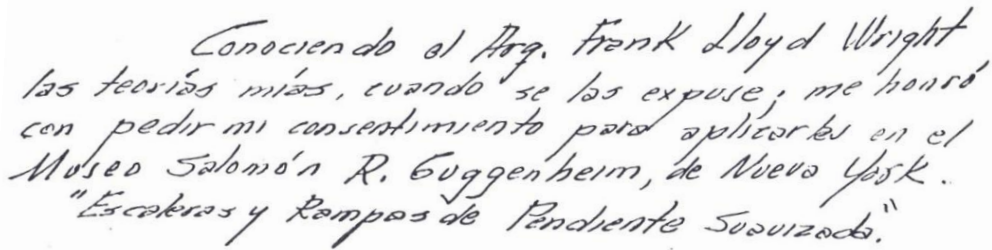 Conociendo el Arq. Frank Lloyd Wright
las teorías mías, cuando se las expuse; me honró
con pedir mi consentimiento para aplicarlas en el
Museo Salomón R. Guggenheim, de Nueva York.
"Escaleras y Rampas de Pendiente Suavizada."